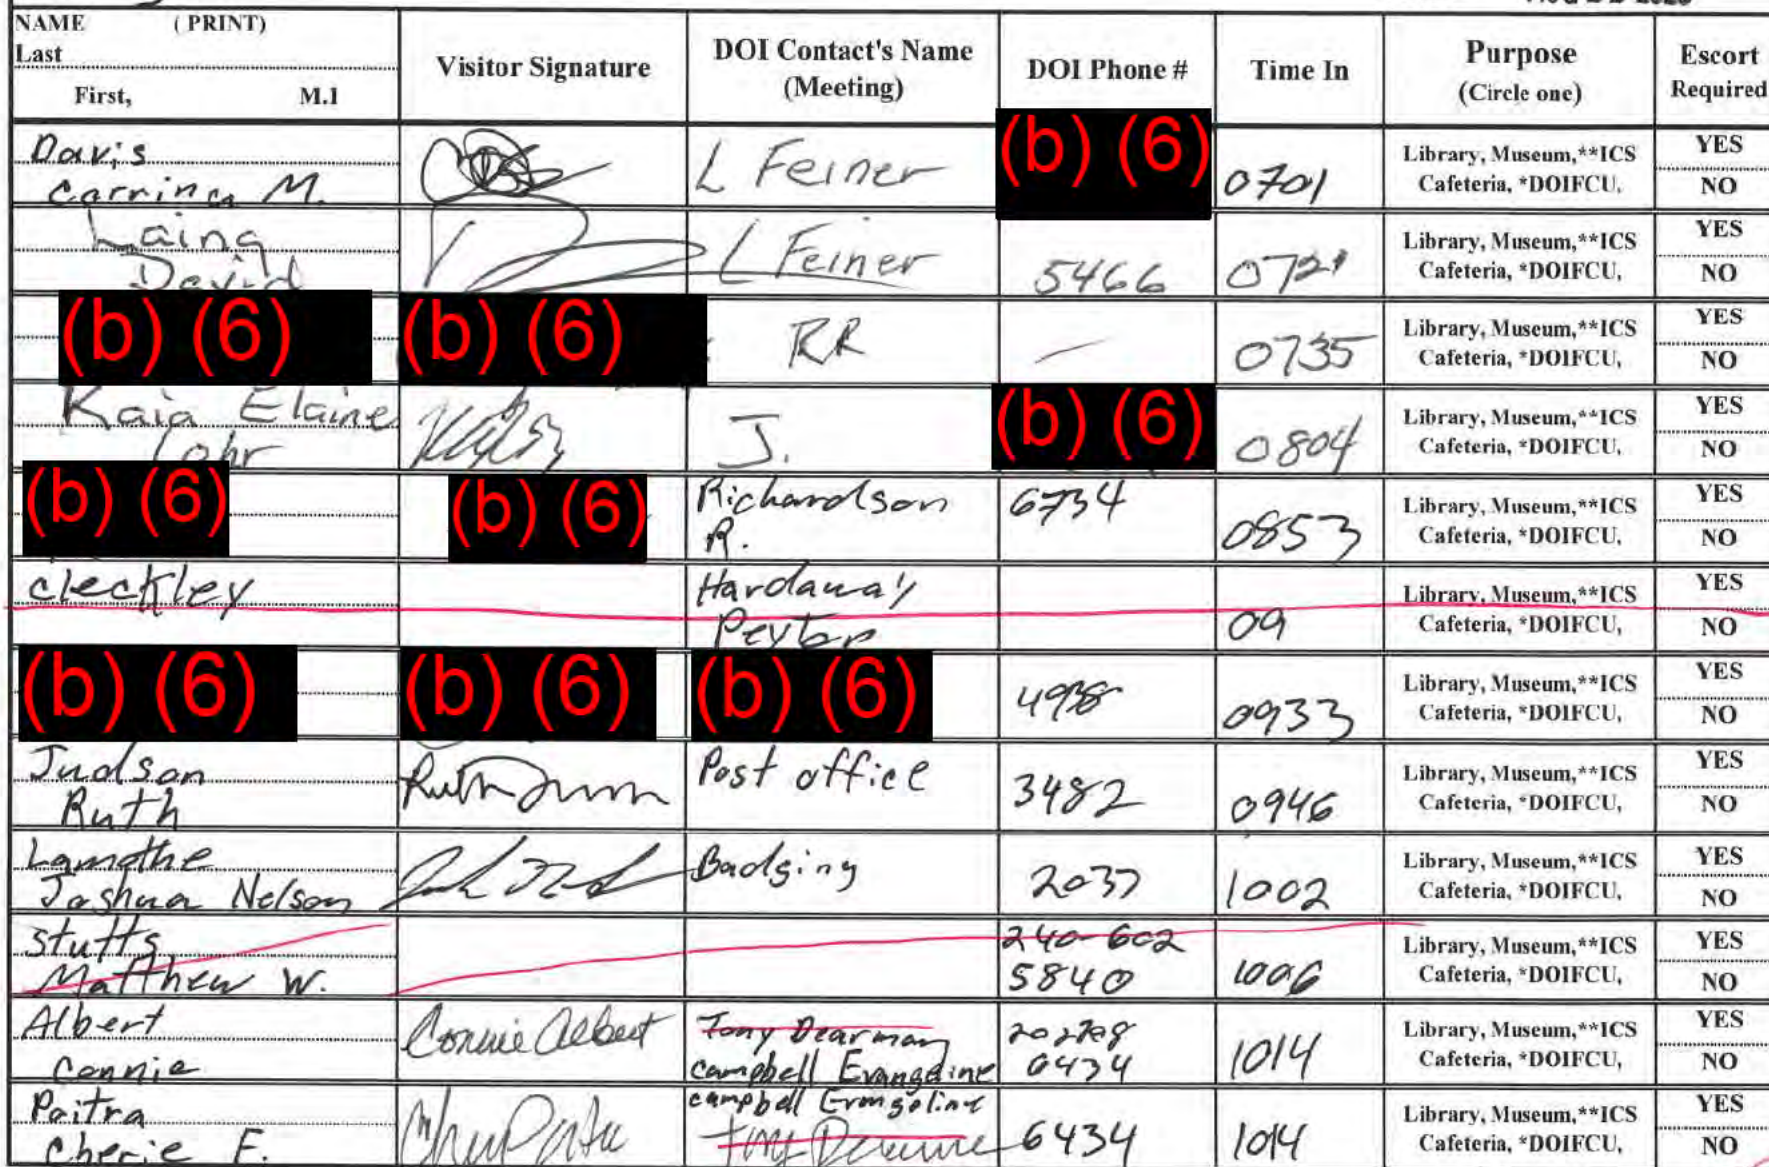 NAME ( PRINT)
Last
First, M.I
Visitor Signature
DOI Contact's Name
(Meeting)
DOI Phone #
Time In
Purpose
(Circle one)
Escort
Required
Davis
Carrinca M.
L Feiner
(b) (6)
0701
Library, Museum,**ICS
Cafeteria, *DOIFCU,
YES
NO
Laing
David
L Feiner
5466
0721
Library, Museum,**ICS
Cafeteria, *DOIFCU,
YES
NO
(b) (6)
(b) (6)
RR
0735
Library, Museum,**ICS
Cafeteria, *DOIFCU,
YES
NO
Kaia Elaine
Lohr
J.
(b) (6)
0804
Library, Museum,**ICS
Cafeteria, *DOIFCU,
YES
NO
(b) (6)
(b) (6)
Richardson
R.
6734
0853
Library, Museum,**ICS
Cafeteria, *DOIFCU,
YES
NO
cleckley
Hardaway
Peyton
09
Library, Museum,**ICS
Cafeteria, *DOIFCU,
YES
NO
(b) (6)
(b) (6)
(b) (6)
0933
Library, Museum,**ICS
Cafeteria, *DOIFCU,
YES
NO
Judson
Ruth
Ruth
Post office
3482
0946
Library, Museum,**ICS
Cafeteria, *DOIFCU,
YES
NO
Lamothe
Joshua Nelson
Badging
2037
1002
Library, Museum,**ICS
Cafeteria, *DOIFCU,
YES
NO
Stutts
Matthew W.
240-602
5840
1006
Library, Museum,**ICS
Cafeteria, *DOIFCU,
YES
NO
Albert
Connie
Connie Albert
Tony Dearman
campbell Evangeline
202208
6434
1014
Library, Museum,**ICS
Cafeteria, *DOIFCU,
YES
NO
Paitra
Cherie F.
campbell Evangeline
6434
1014
Library, Museum,**ICS
Cafeteria, *DOIFCU,
YES
NO